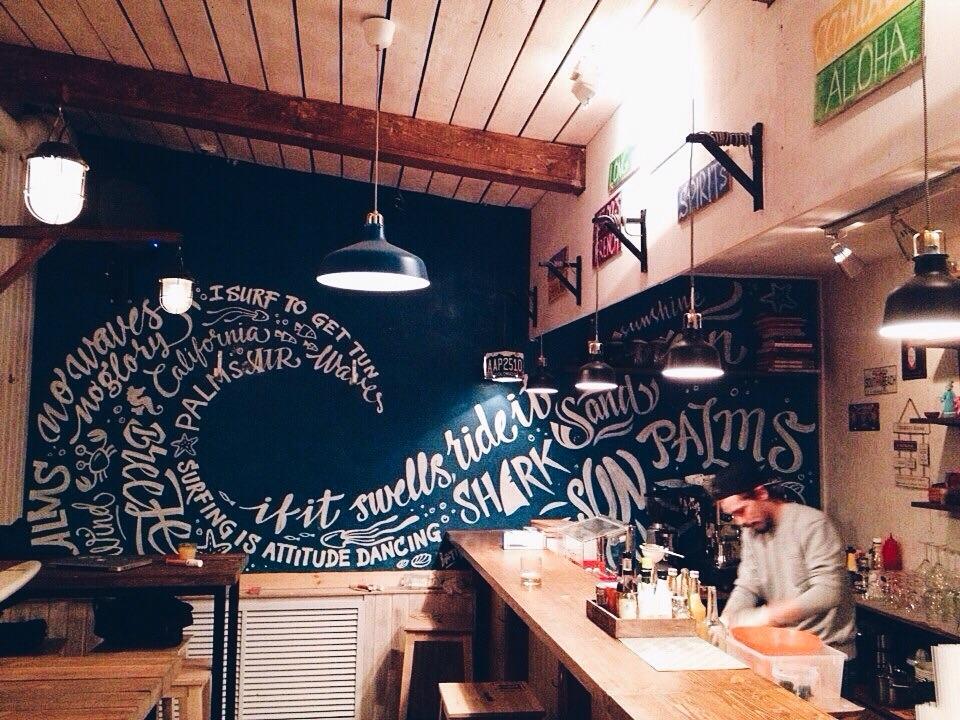 ALOHA,
SPIRITS
LONG
I SURF TO GET TUN
no waves
no glory
California
PALMS AIR Waves
AAP2510
PALMS
Wind
SURFING IS ATTITUDE DANCING
if it swells, ride it
SHARK
Sand
SUN
PALMS
sunshine